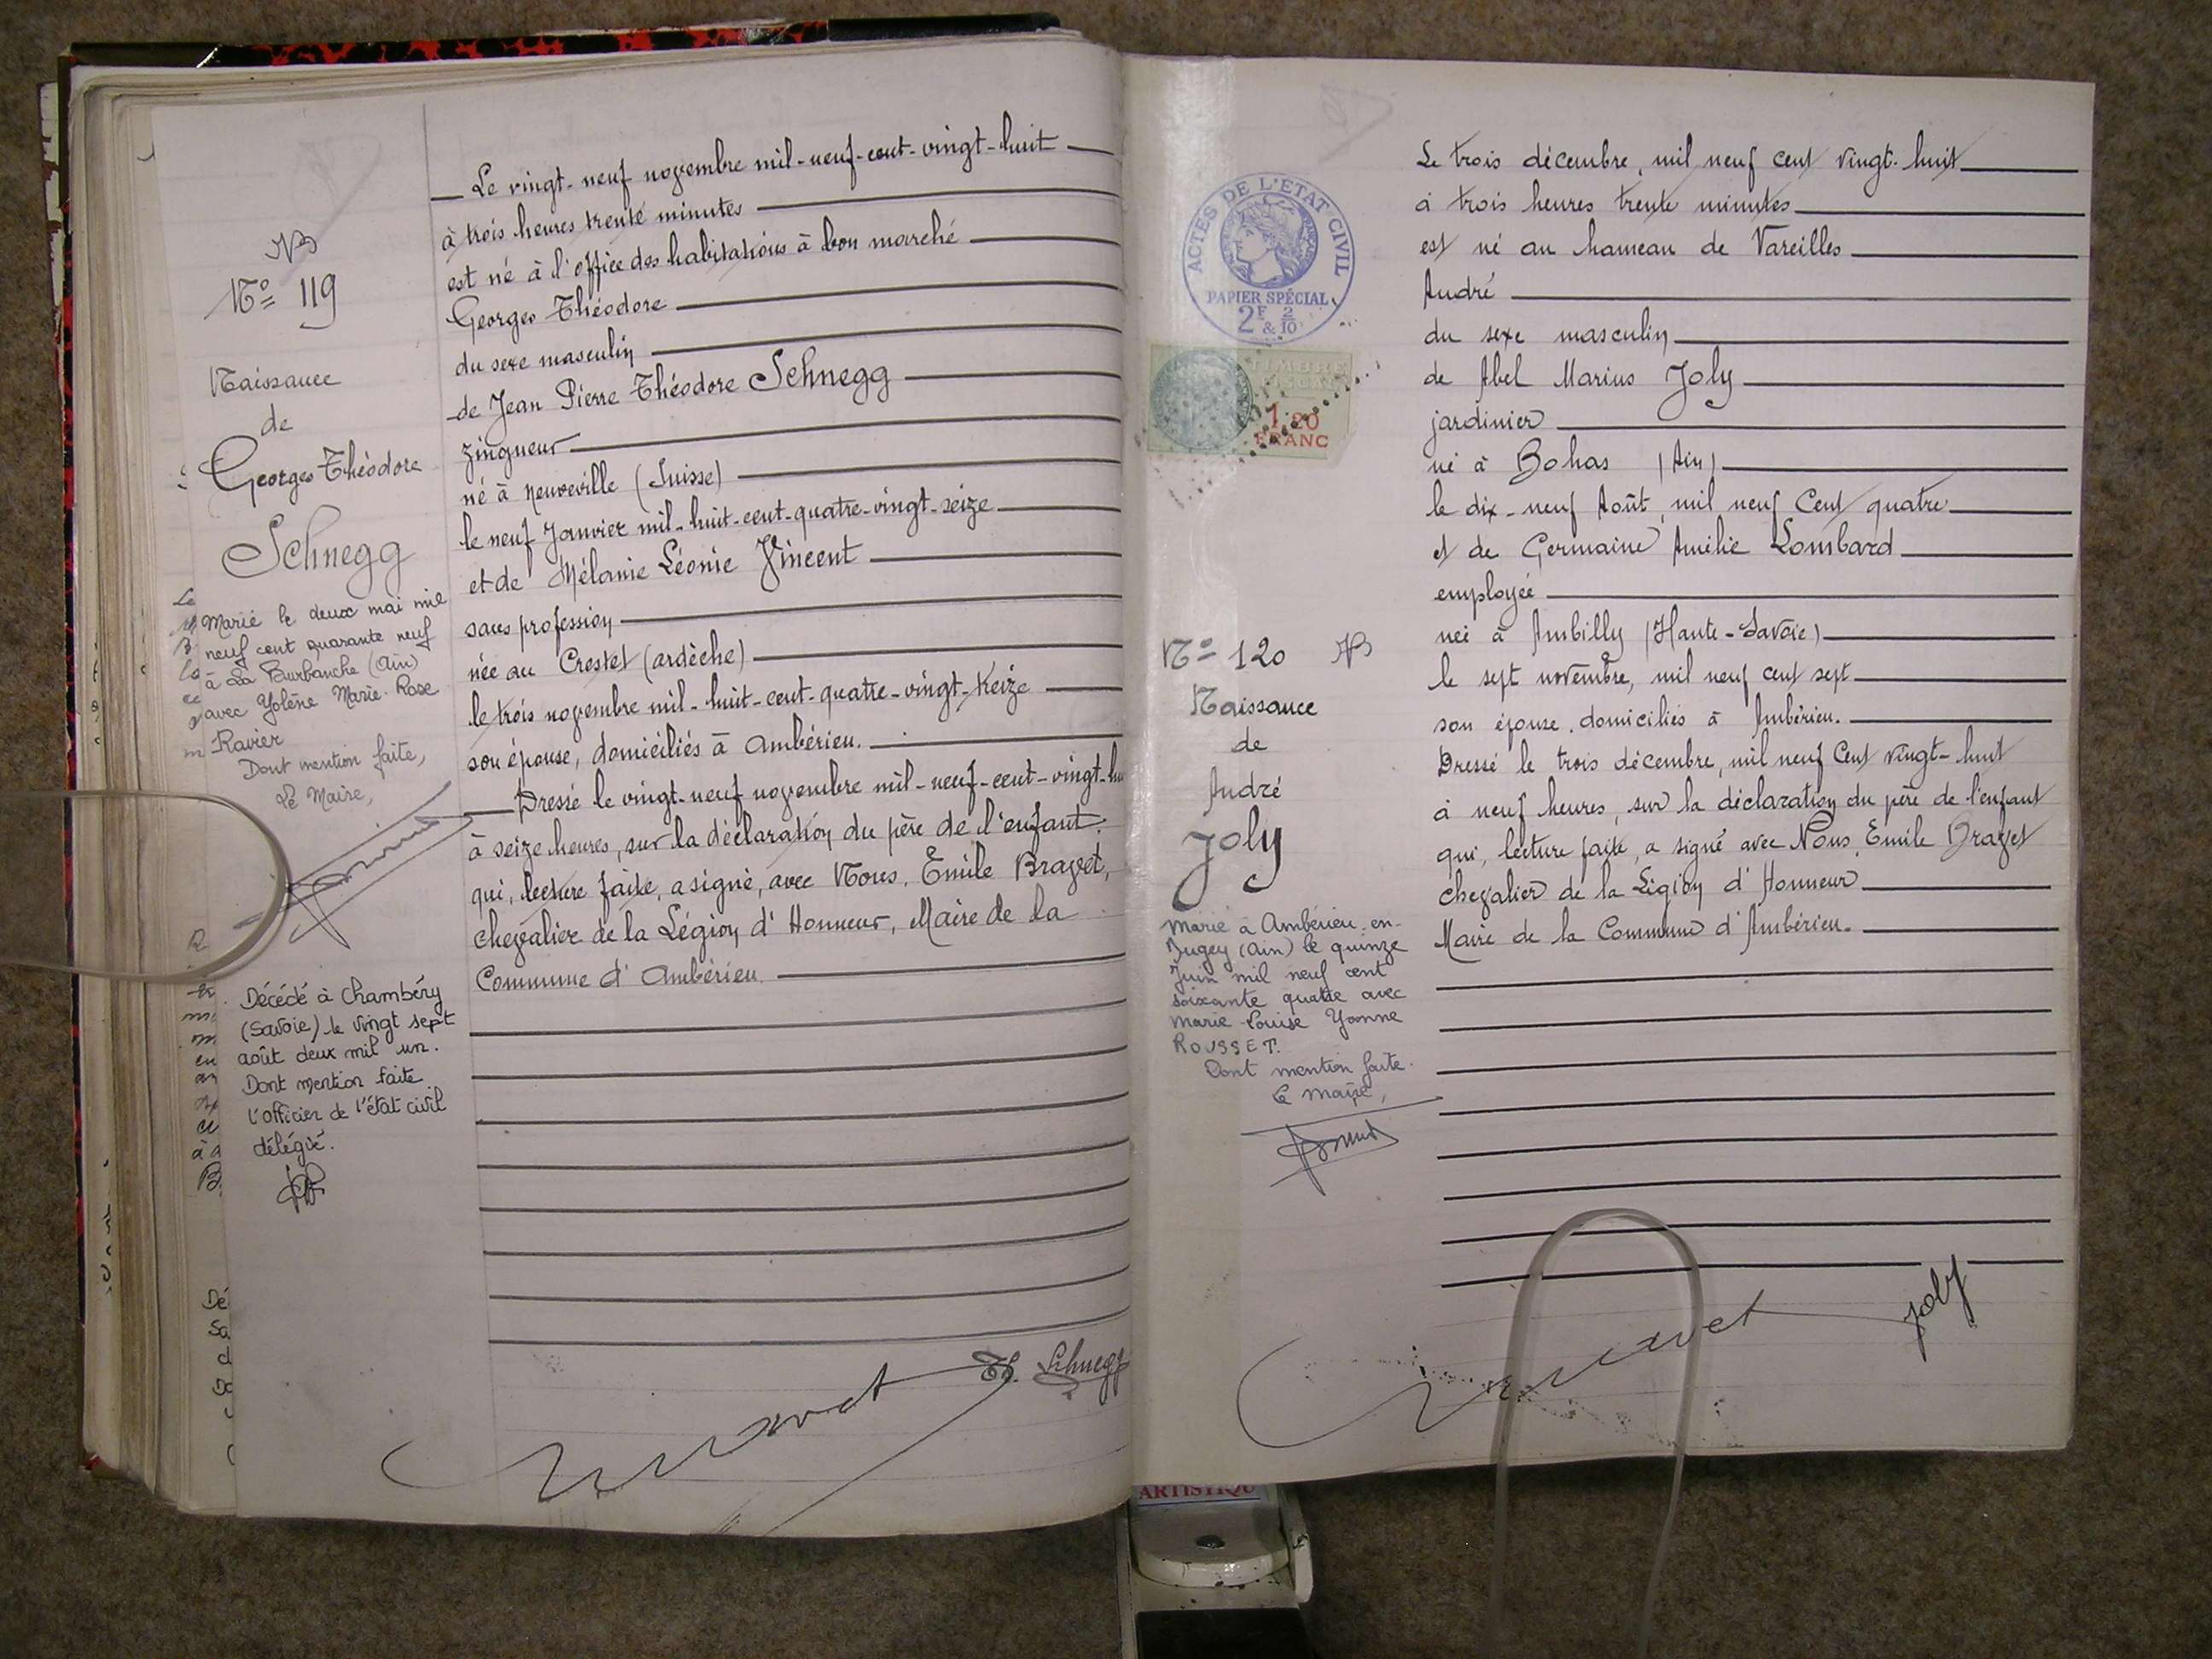 N° 119
Naissance
de
Georges Théodore
Schnegg
Marié le deux mai mil
neuf cent quarante neuf
à La Burbanche (Ain)
avec Yolène Marie-Rose
Ravier
Dont mention faite,
Le Maire,
Décédé à Chambéry
(Savoie) le vingt sept
août deux mil un.
Dont mention faite
l'officier de l'état civil
délégué.
Le vingt-neuf novembre mil-neuf-cent-vingt-huit
à trois heures trente minutes
est né à l'office des habitations à bon marché
Georges Théodore
du sexe masculin
de Jean Pierre Théodore Schnegg
zingueur
né à Neuveville (Suisse)
le neuf Janvier mil-huit-cent-quatre-vingt-seize
et de Mélanie Léonie Vincent
sans profession
née au Crestet (ardèche)
le trois novembre mil-huit-cent-quatre-vingt-treize
son épouse, domiciliés à Ambérieu.
Dressé le vingt-neuf novembre mil-neuf-cent-vingt-hu
à seize heures, sur la déclaration du père de l'enfant.
qui, lecture faite, a signé, avec Nous, Emile Bravet,
chevalier de la Légion d'Honneur, Maire de la
Commune d'Ambérieu.
Bravet
Th. Schnegg
ACTES DE L'ETAT CIVIL
PAPIER SPÉCIAL
2F & 2/10
TIMBRE
FISCAL
1,20
FRANC
N° 120
Naissance
de
André
Joly
Marié à Ambérieu-en-
Bugey (Ain) le quinze
Juin mil neuf cent
soixante quatre avec
Marie-Louise Yvonne
ROUSSET.
Dont mention faite.
Le maire,
Le trois décembre, mil neuf cent vingt-huit
à trois heures trente minutes
est né au hameau de Vareilles
André
du sexe masculin
de Abel Marius Joly
jardinier
né à Bohas (Ain)
le dix-neuf Août, mil neuf Cent quatre
et de Germaine Amélie Lombard
employée
née à Ambilly (Haute-Savoie)
le sept novembre, mil neuf cent sept
son épouse. domiciliés à Ambérieu.
Dressé le trois décembre, mil neuf Cent vingt-huit
à neuf heures, sur la déclaration du père de l'enfant
qui, lecture faite, a signé avec Nous, Emile Bravet
chevalier de la Légion d'Honneur
Maire de la Commune d'Ambérieu.
Bravet
Joly
ARTISTIQU